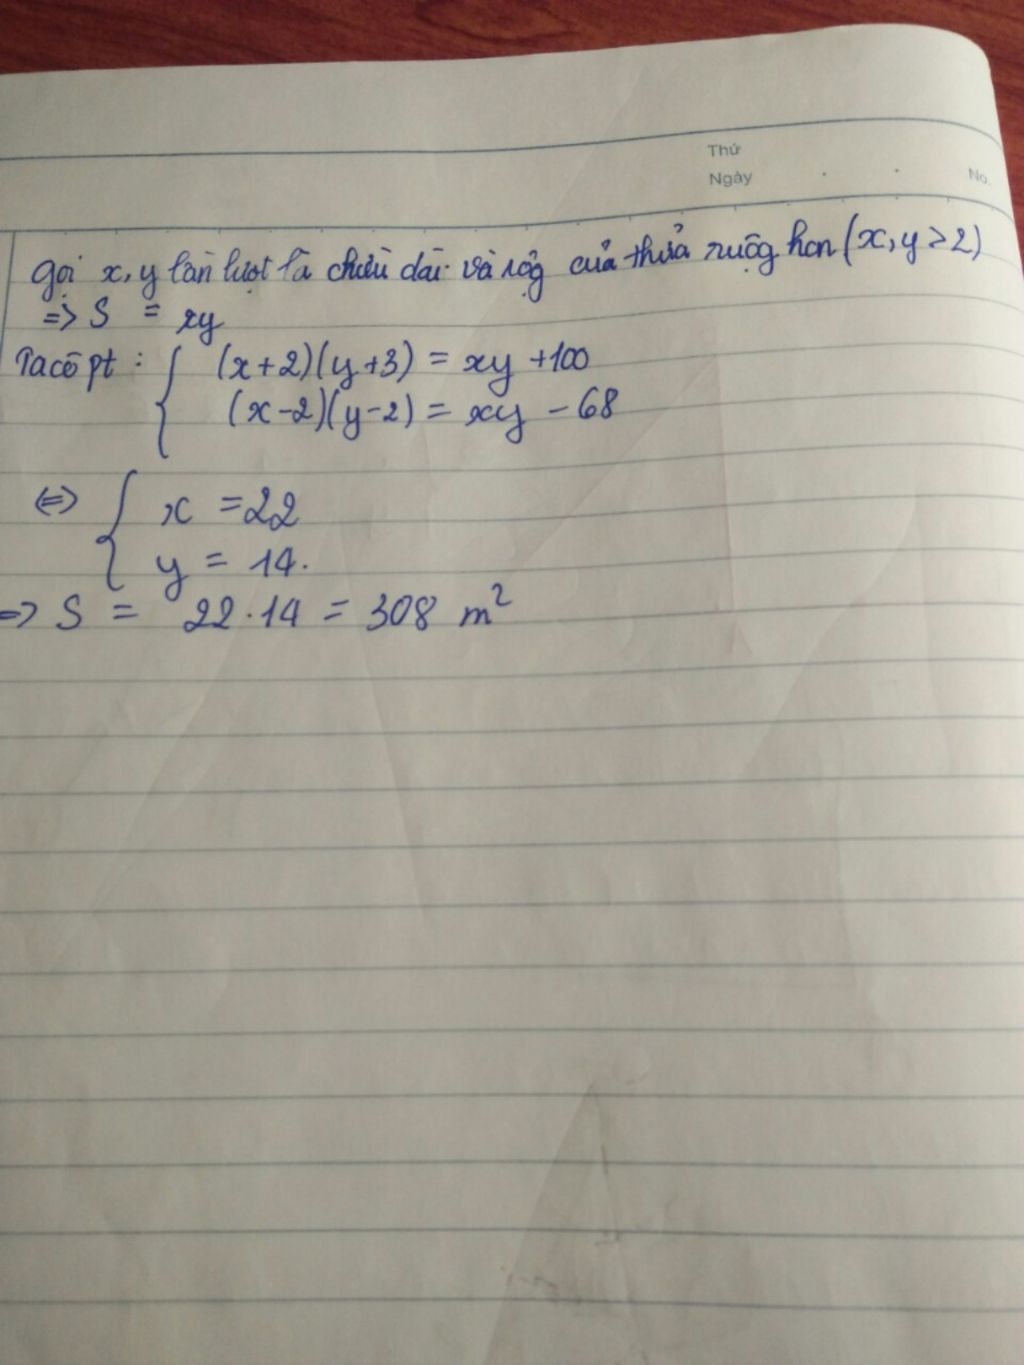 Thứ
Ngày
No.
gọi x, y lần lượt là chiều dài và rộg của thửa ruộg hcn (x, y > 2)
=> S = xy
Ta có pt : { (x+2)(y+3) = xy +100
(x-2)(y-2) = xy - 68
<=> { x = 22
y = 14.
=> S = 22.14 = 308 m²